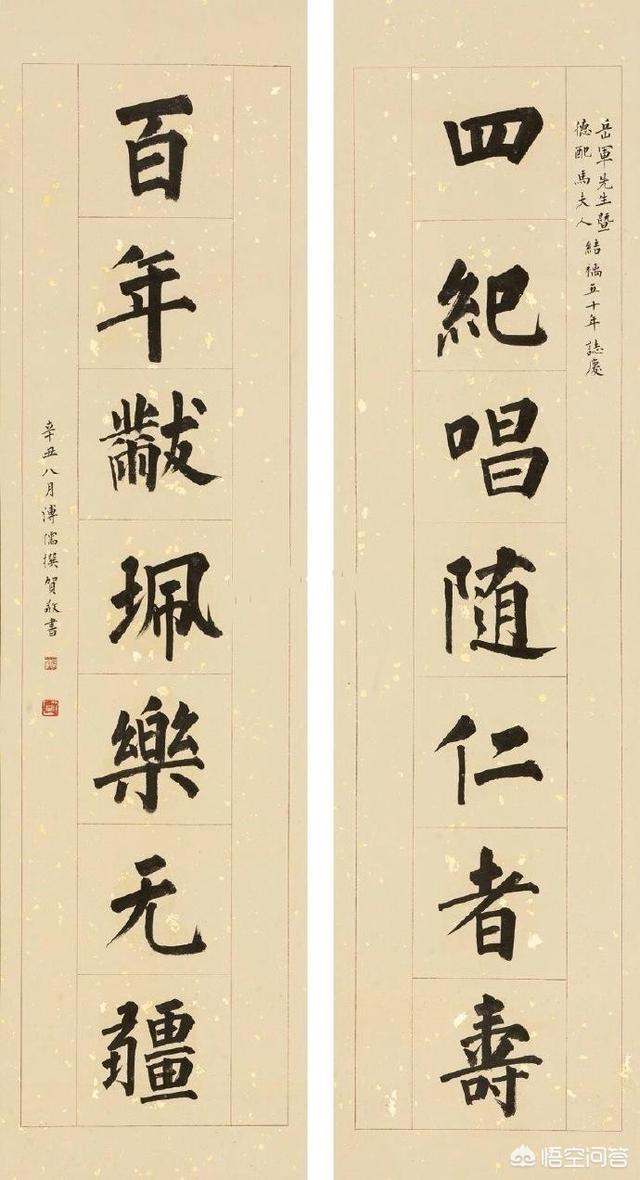 岳軍先生暨
德配馬夫人結褵五十年誌慶
四紀唱随仁者壽
百年黻珮樂无疆
辛丑八月溥儒撰賀敬書
悟空问答